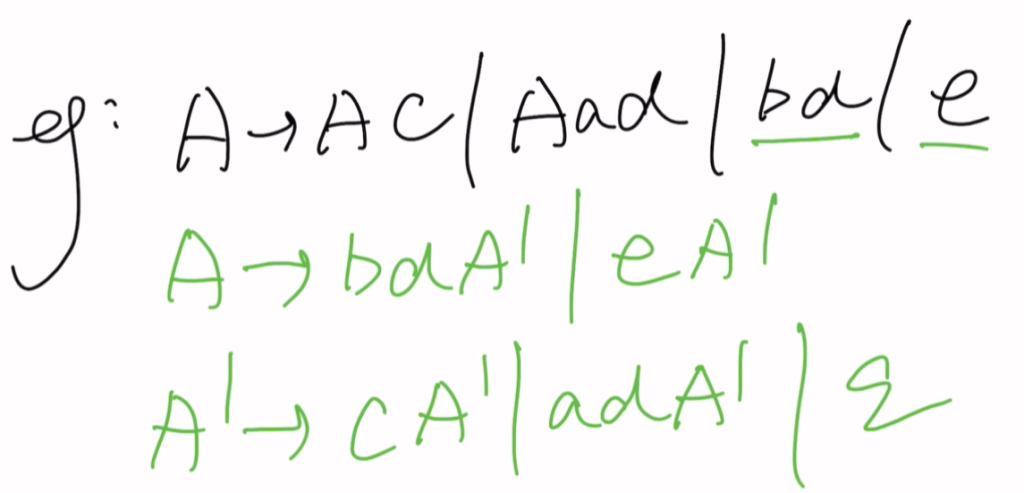 eg: A→AC/Aad/bd/e
A→bdA'|eA'
A'→CA'|adA'|ε